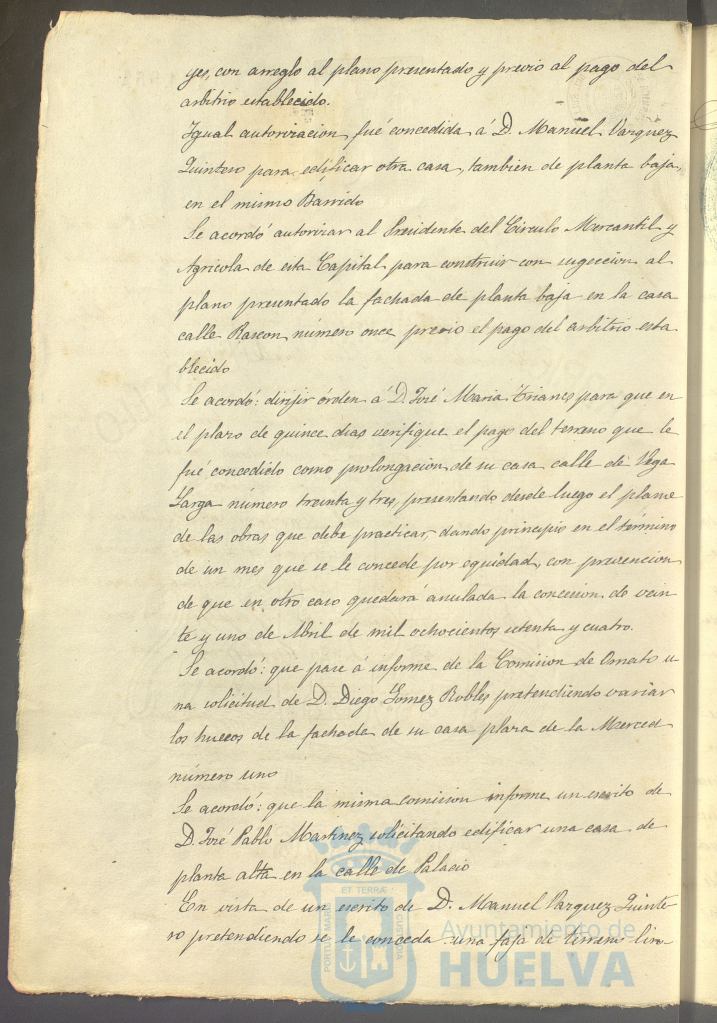 yes, con arreglo al plano presentado y previo al pago del
arbitrio establecido.
Igual autorizacion fué concedida á D. Manuel Vazquez
Quintero para edificar otra casa, tambien de planta baja,
en el mismo Barrido
Se acordó autorizar al Presidente del Circulo Mercantil y
Agricola de esta Capital para construir con sugeccion al
plano presentado la fachada de planta baja en la casa
calle Rascon, número once previo el pago del arbitrio esta
blecido
Se acordó: dirijir órden á D. José Maria Trianes para que en
el plazo de quince dias verifique el pago del terreno que le
fué concedido como prolongacion de su casa calle de Vega
Larga número treinta y tres, presentando desde luego el plano
de las obras que debe practicar, dando principio en el término
de un mes que se le concede por equidad, con prevencion
de que en otro caso quedará anulada la concesion de vein
te y uno de Abril de mil ochocientos setenta y cuatro.
Se acordó: que pase á informe de la Comision de Ornato u
na solicitud de D. Diego Gomez Robles pretendiendo variar
los huecos de la fachada de su casa plaza de la Merced
número uno
Se acordó: que la misma comision informe un escrito de
D. José Pablo Martinez solicitando edificar una casa de
planta alta en la calle de Palacio
En vista de un escrito de D. Manuel Vazquez Quinte-
ro pretendiendo se le conceda una faja de terreno lin-
PORTUS MARIS
ET TERRÆ
CUSTODIA
Ayuntamiento de
HUELVA